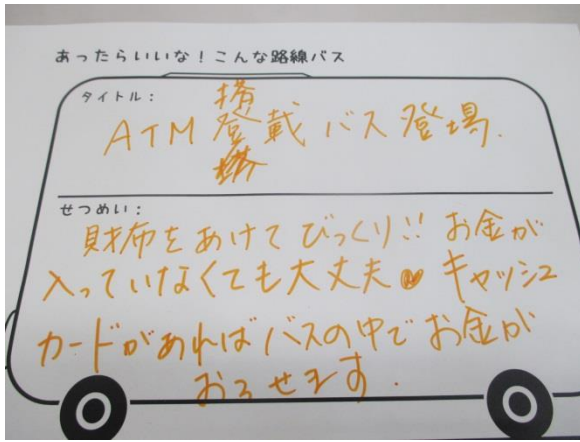 あったらいいな！こんな路線バス
タイトル：
搭
ATM登載バス登場.
せつめい：
財布をあけてびっくり!! お金が
入っていなくても大丈夫♥ キャッシュ
カードがあればバスの中でお金が
おろせます.